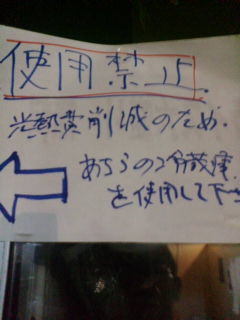 使用禁止.
光熱費削減のため.
あちらの冷蔵庫
を使用して下さ